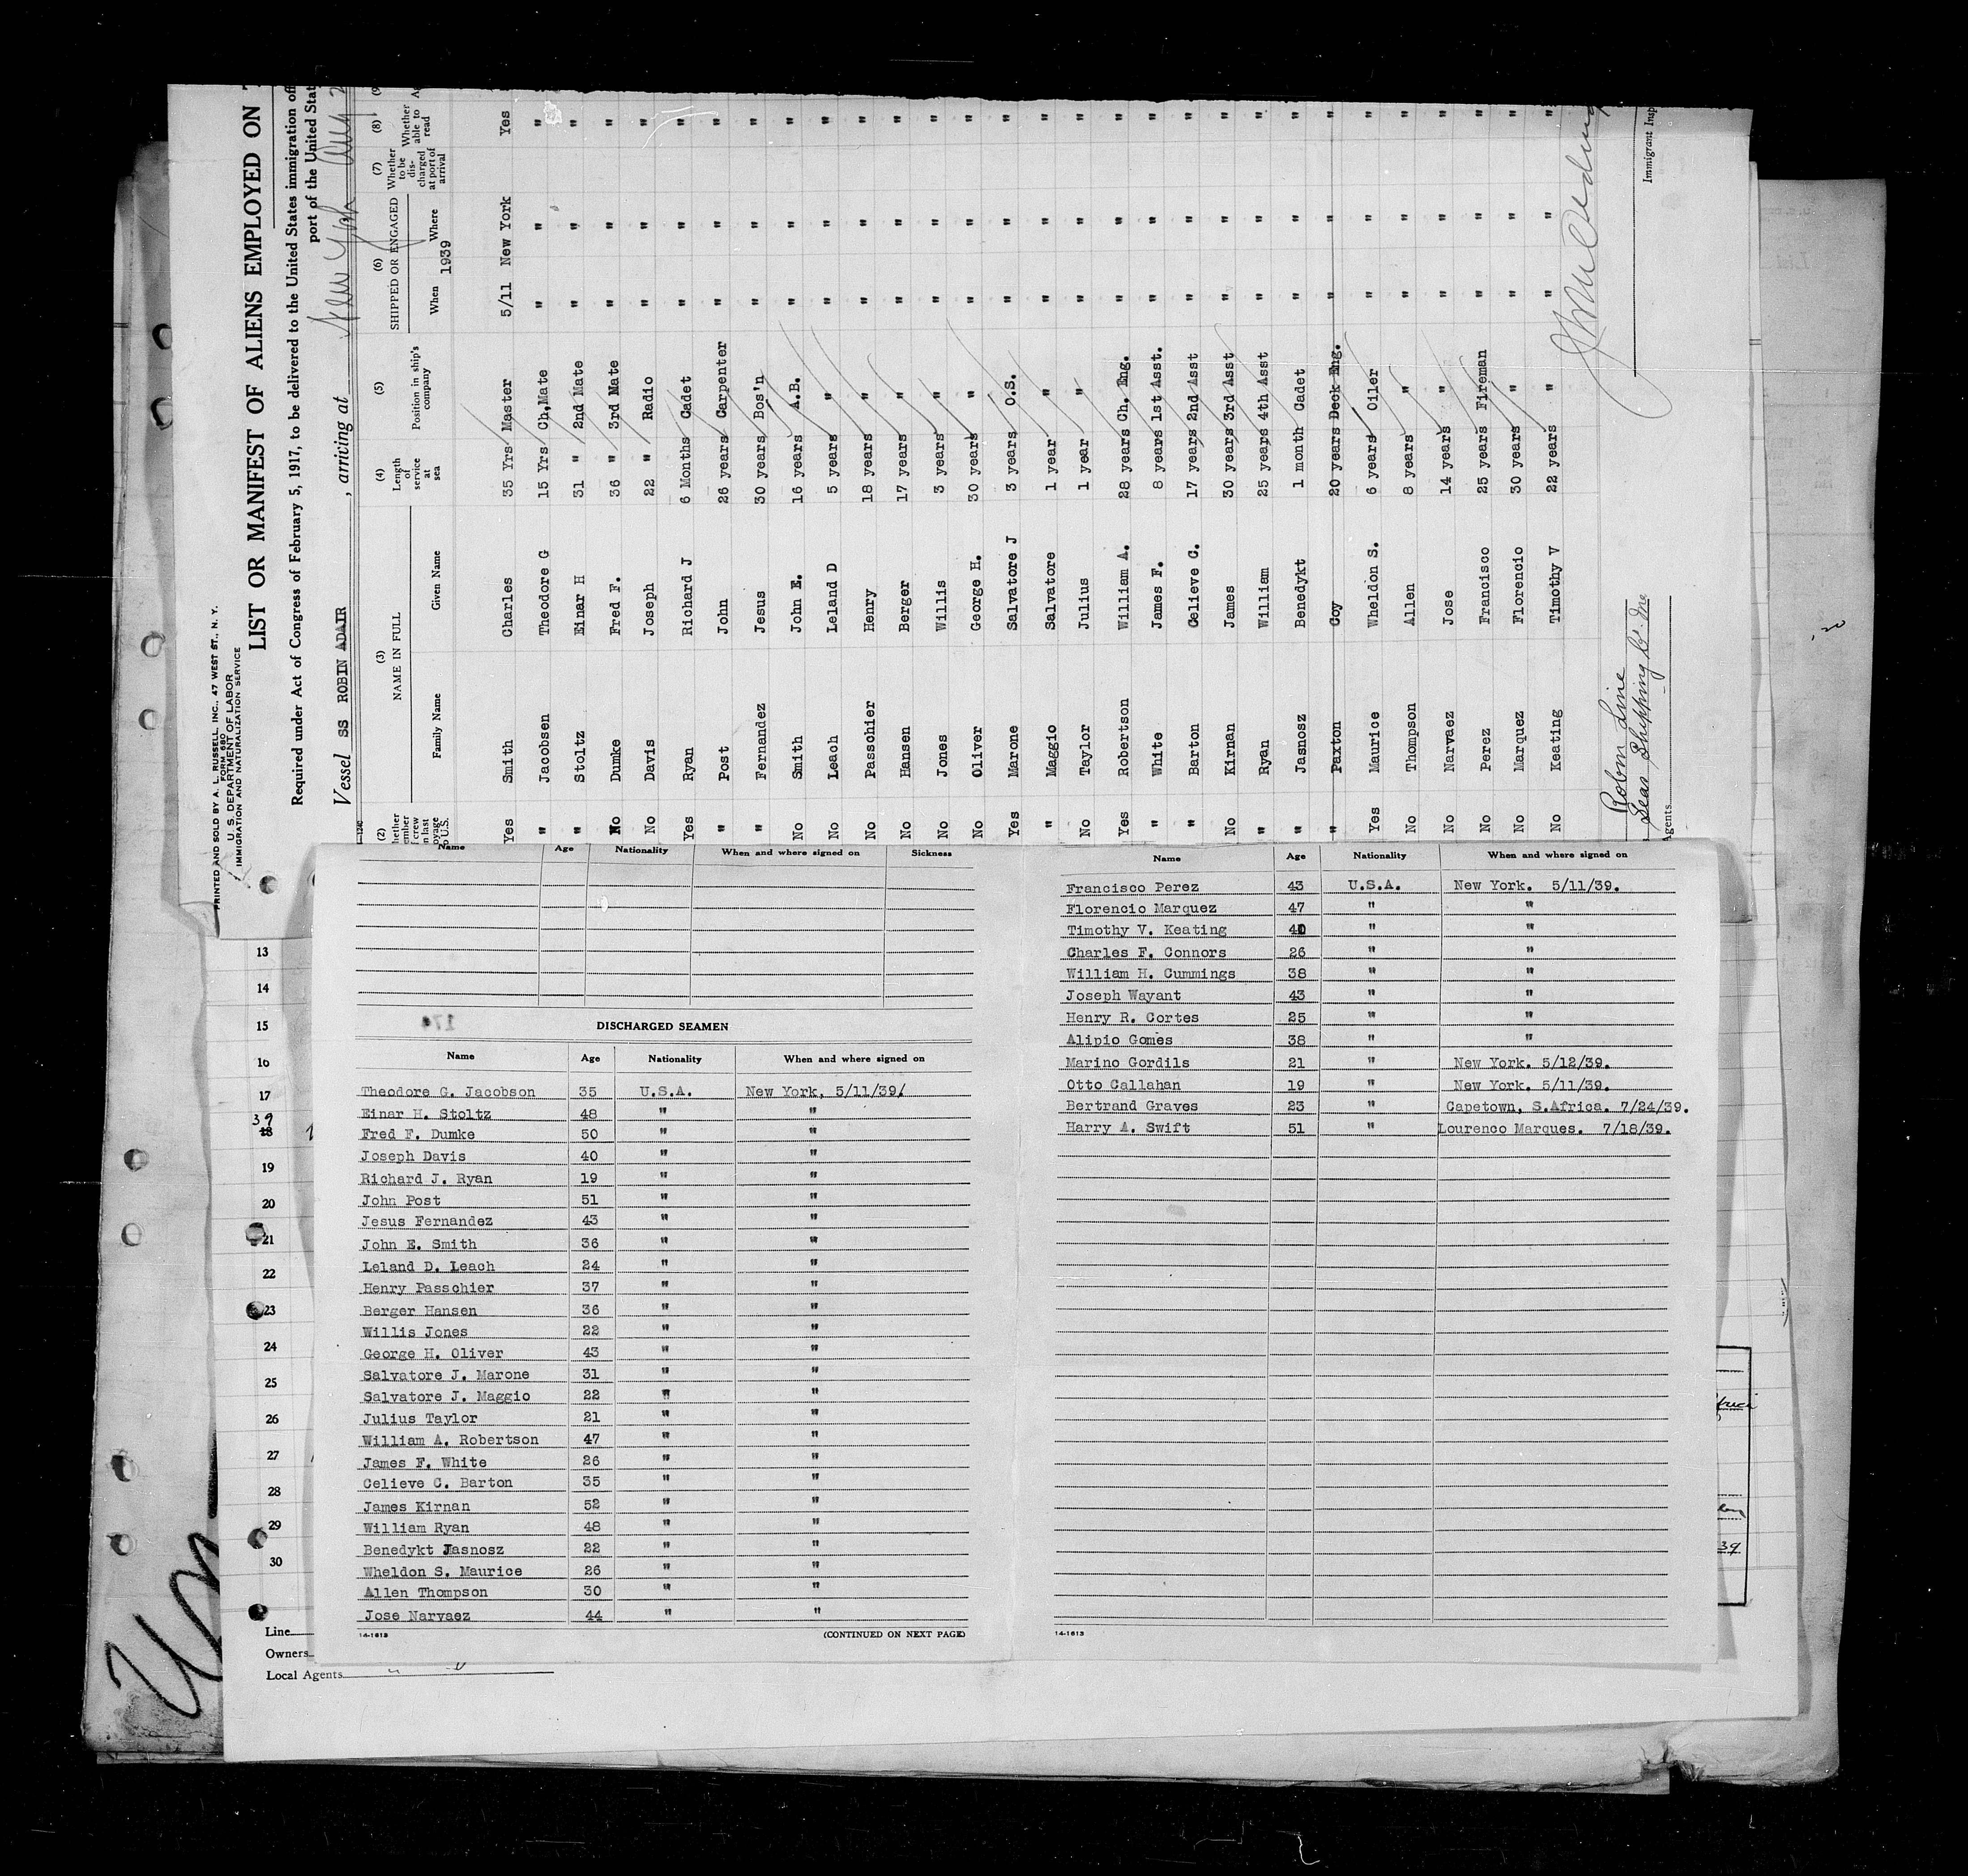 PRINTED AND SOLD BY A. L. RUSSELL, INC., 47 WEST ST., N. Y.
FORM 680
U. S. DEPARTMENT OF LABOR
IMMIGRATION AND NATURALIZATION SERVICE
LIST OR MANIFEST OF ALIENS EMPLOYED ON
Required under Act of Congress of February 5, 1917, to be delivered to the United States immigration
port of the United
Vessel SS ROBIN ADAIR, arriving at New York Aug
(2) (3) (4) (5) (6) (7) (8)
NAME IN FULL Length of service at sea Position in ship's company SHIPPED OR ENGAGED Whether to be discharged at port of arrival Whether able to read
Family Name Given Name When Where
1939
Yes Smith Charles 35 Yrs Master 5/11 New York Yes
" Jacobsen Theodore G 15 Yrs Ch,Mate " " "
" Stoltz Einar H 31 " 2nd Mate " " "
No Dumke Fred F. 36 " 3rd Mate " " "
No Davis Joseph 22 " Radio " " "
Yes Ryan Richard J 6 Months Cadet " " "
" Post John 26 years Carpenter " " "
" Fernandez Jesus 30 years Bos'n " " "
No Smith John E. 16 years A.B. " " "
No Leach Leland D 5 years " " " "
No Passchier Henry 18 years " " " "
No Hansen Berger 17 years " " " "
No Jones Willis 3 years " " " "
No Oliver George H. 30 years " " " "
Yes Marone Salvatore J 3 years O.S. " " "
" Maggio Salvatore 1 year " " " "
No Taylor Julius 1 year " " " "
Yes Robertson William A. 28 years Ch. Eng. " " "
" White James F. 8 years 1st Asst. " " "
" Barton Celieve C. 17 years 2nd Asst " " "
No Kirnan James 30 years 3rd Asst " " "
" Ryan William 25 years 4th Asst " " "
" Jasnosz Benedykt 1 month Cadet " " "
" Paxton Coy 20 years Deck Eng. " " "
Yes Maurice Wheldon S. 6 years Oiler " " "
No Thompson Allen 8 years " " " "
No Narvaez Jose 14 years " " " "
No Perez Francisco 25 years Fireman " " "
No Marquez Florencio 30 years " " " "
No Keating Timothy V 22 years " " " "
Robin Line
Seas Shipping Co. Inc
Agents
Immigrant
Name Age Nationality When and where signed on Sickness
DISCHARGED SEAMEN
Name Age Nationality When and where signed on
Theodore G. Jacobson 35 U.S.A. New York, 5/11/39/
Einar H. Stoltz 48 " "
Fred F. Dumke 50 " "
Joseph Davis 40 " "
Richard J. Ryan 19 " "
John Post 51 " "
Jesus Fernandez 43 " "
John E. Smith 36 " "
Leland D. Leach 24 " "
Henry Passchier 37 " "
Berger Hansen 36 " "
Willis Jones 22 " "
George H. Oliver 43 " "
Salvatore J. Marone 31 " "
Salvatore J. Maggio 22 " "
Julius Taylor 21 " "
William A. Robertson 47 " "
James F. White 26 " "
Celieve C. Barton 35 " "
James Kirnan 52 " "
William Ryan 48 " "
Benedykt Jasnosz 22 " "
Wheldon S. Maurice 26 " "
Allen Thompson 30 " "
Jose Narvaez 44 " "
14-1613 (CONTINUED ON NEXT PAGE)
Name Age Nationality When and where signed on
Francisco Perez 43 U.S.A. New York. 5/11/39.
Florencio Marquez 47 " "
Timothy V. Keating 40 " "
Charles F. Connors 26 " "
William H. Cummings 38 " "
Joseph Wayant 43 " "
Henry R. Cortes 25 " "
Alipio Gomes 38 " "
Marino Gordils 21 " New York. 5/12/39.
Otto Callahan 19 " New York. 5/11/39.
Bertrand Graves 23 " Capetown, S.Africa. 7/24/39.
Harry A. Swift 51 " Lourenco Marques. 7/18/39.
14-1613
13
14
15
16
17
39
18
19
20
21
22
23
24
25
26
27
28
29
30
Line
Owners
Local Agents
39